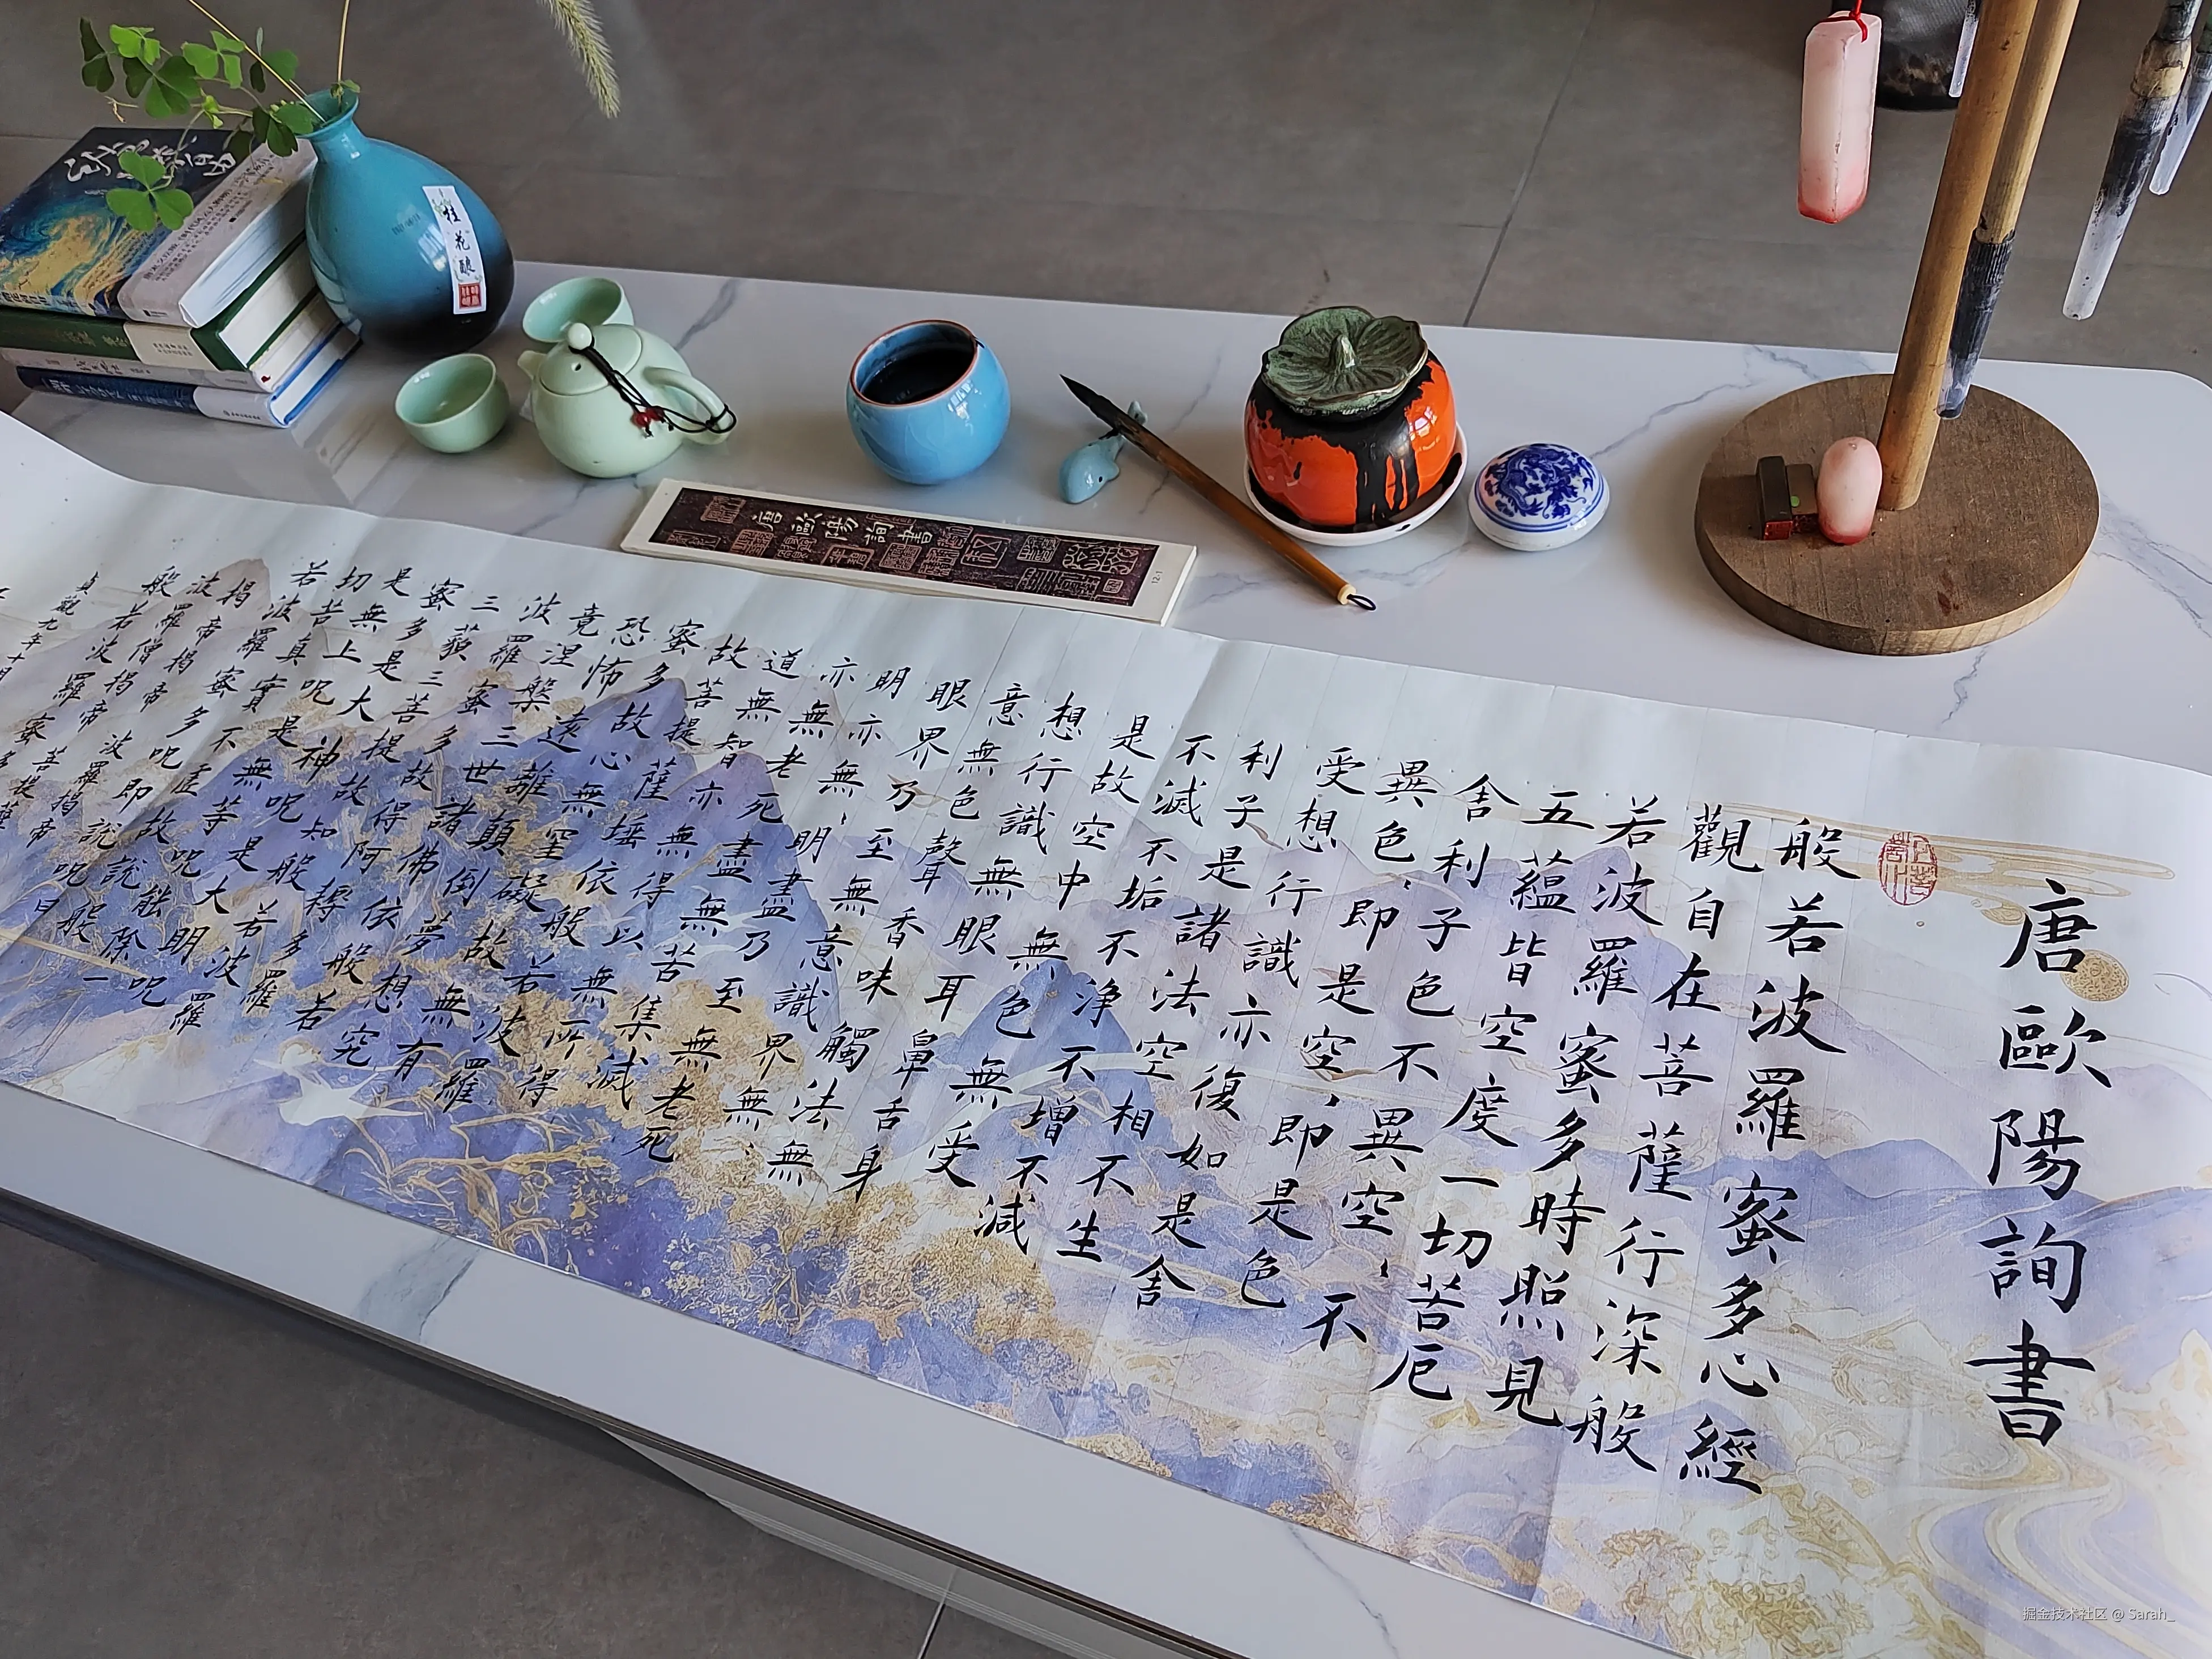 桂花酿
唐歐陽詢書
12.1
唐歐陽詢書
般若波羅蜜多心經
觀自在菩薩行深般
若波羅蜜多時照見
五蘊皆空度一切苦厄
舍利子色不異空、不
異色、即是空、即是色
受想行識亦復如是舍
利子是諸法空相不生
不滅不垢不净不增不減
是故空中無色無受
想行識無眼耳鼻舌身
意無色聲香味觸法無
眼界乃至無意識界無、
明亦無、明盡乃至無老死
亦無老死盡無苦集滅
道無智亦無得以無所得
故菩提薩埵依般若波羅
蜜多故心無罣礙故無有
恐怖遠離顛倒夢想究
竟涅槃三世諸佛依般若
波羅蜜多故得阿耨多羅
三藐三菩提故知般若波羅
蜜多是大神呪是大明呪
是無上呪是無等呪能除一
切苦真實不虛故說般
若波羅蜜多呪即說呪曰
揭帝揭帝波羅揭帝
波羅僧揭帝菩提薩
般若波羅蜜多
貞觀九年十月
掘金技术社区 @ Sarah_